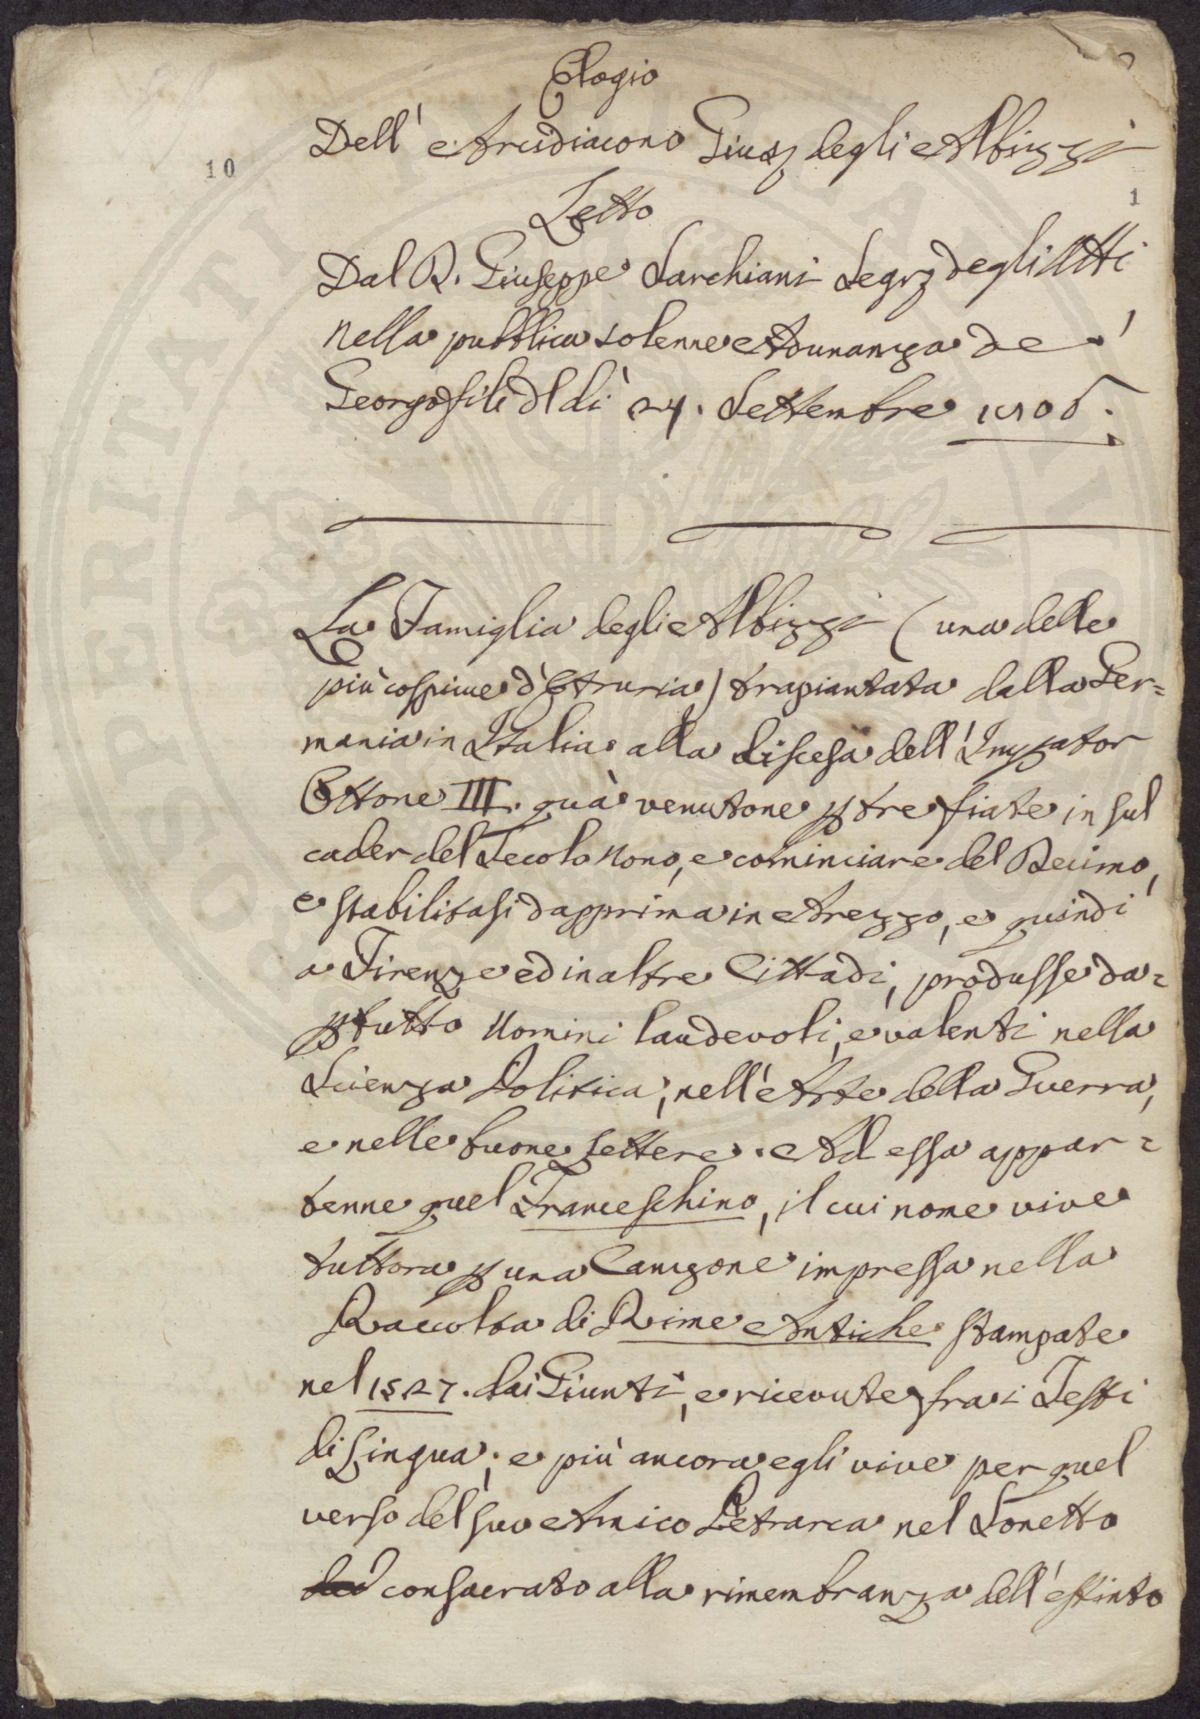 Elogio
Dell' Arcidiacono Giusz degli Albizzi
10
1
Letto
Dal D. Giuseppe Sarchiani Segrz degli Atti
nella pubblica solenne Adunanza de'
Georgofili dl dì 24. Settembre
La Famiglia degli Albizzi (una delle
più cospicue d'Etruria) trapiantata dalla Ger=
mania in Italia alla discesa dell' Impator
Ottone III. quà venutone p tre fiate in sul
cader del Secolo Nono, e cominciare del Decimo,
e stabilitasi dapprima in Arezzo, e quindi
a Firenze ed in altre Cittadi, produsse da=
ptutto Uomini laudevoli, e valenti nella
Scienza Politica, nell'Arte della Guerra,
e nelle buone Lettere. Ad essa appar=
tenne quel Franceschino, il cui nome vive
tuttora p una Canzone impressa nella
Raccolta di Rime Antiche stampate
nel 1527. dai Giunti, e ricevute fra i Testi
di Lingua; e più ancora egli vive per quel
verso del suo Amico Petrarca nel Sonetto
consacrato alla rimembranza dell' estinto